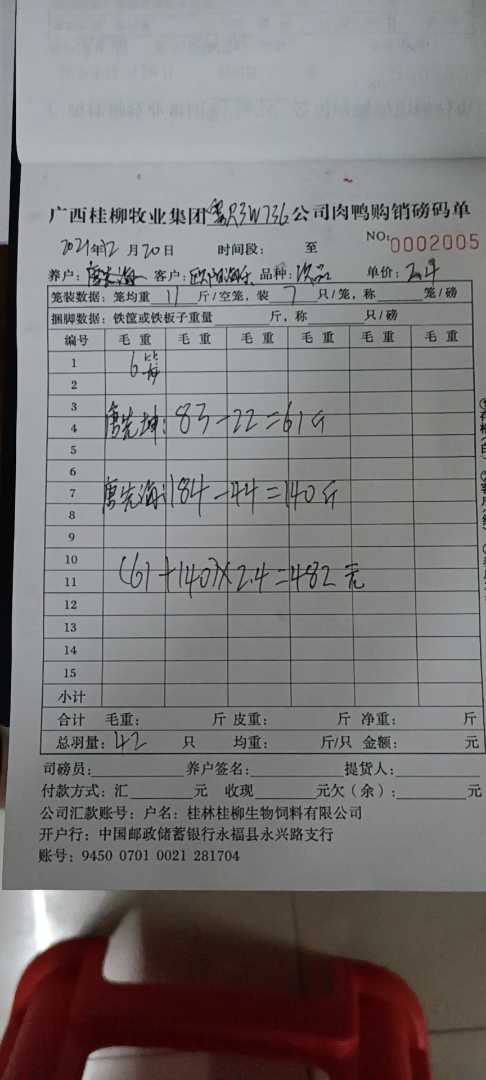 广西桂柳牧业集团粤R3W736公司肉鸭购销磅码单
2021年12月20日 时间段: 至 NO:0002005
养户: 唐先海 客户: 品种: 次品 单价: 2.4
笼装数据: 笼均重 11 斤/空笼, 装 7 只/笼, 称 笼/磅
捆脚数据: 铁筐或铁板子重量 斤, 称 只/磅
编号 毛重 毛重 毛重 毛重 毛重 毛重
1 6
2
3
4 唐先坤: 83-22=61斤
5
6
7 唐先海: 184-44=140斤
8
9
10
11 (61+140)×2.4=482元
12
13
14
15
小计
合计 毛重: 斤 皮重: 斤 净重: 斤
总羽量: 42 只 均重: 斤/只 金额: 元
司磅员: 养户签名: 提货人:
付款方式: 汇 元 收现 元欠(余): 元
公司汇款账号: 户名: 桂林桂柳生物饲料有限公司
开户行: 中国邮政储蓄银行永福县永兴路支行
账号: 9450 0701 0021 281704